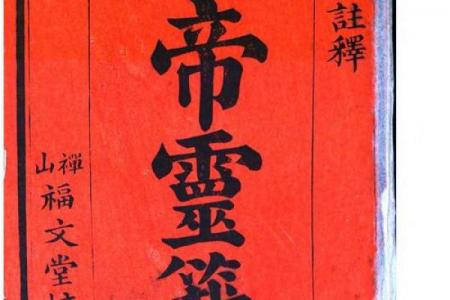 註釋
帝靈籤
禪山福文堂